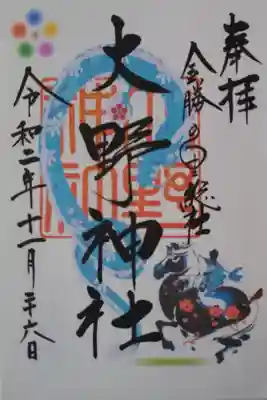 奉拝
金勝の里 総社
大野神社
令和二年十一月二十六日